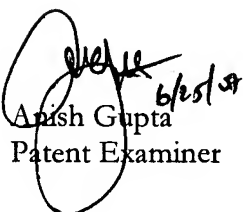 Anish Gupta
Patent Examiner